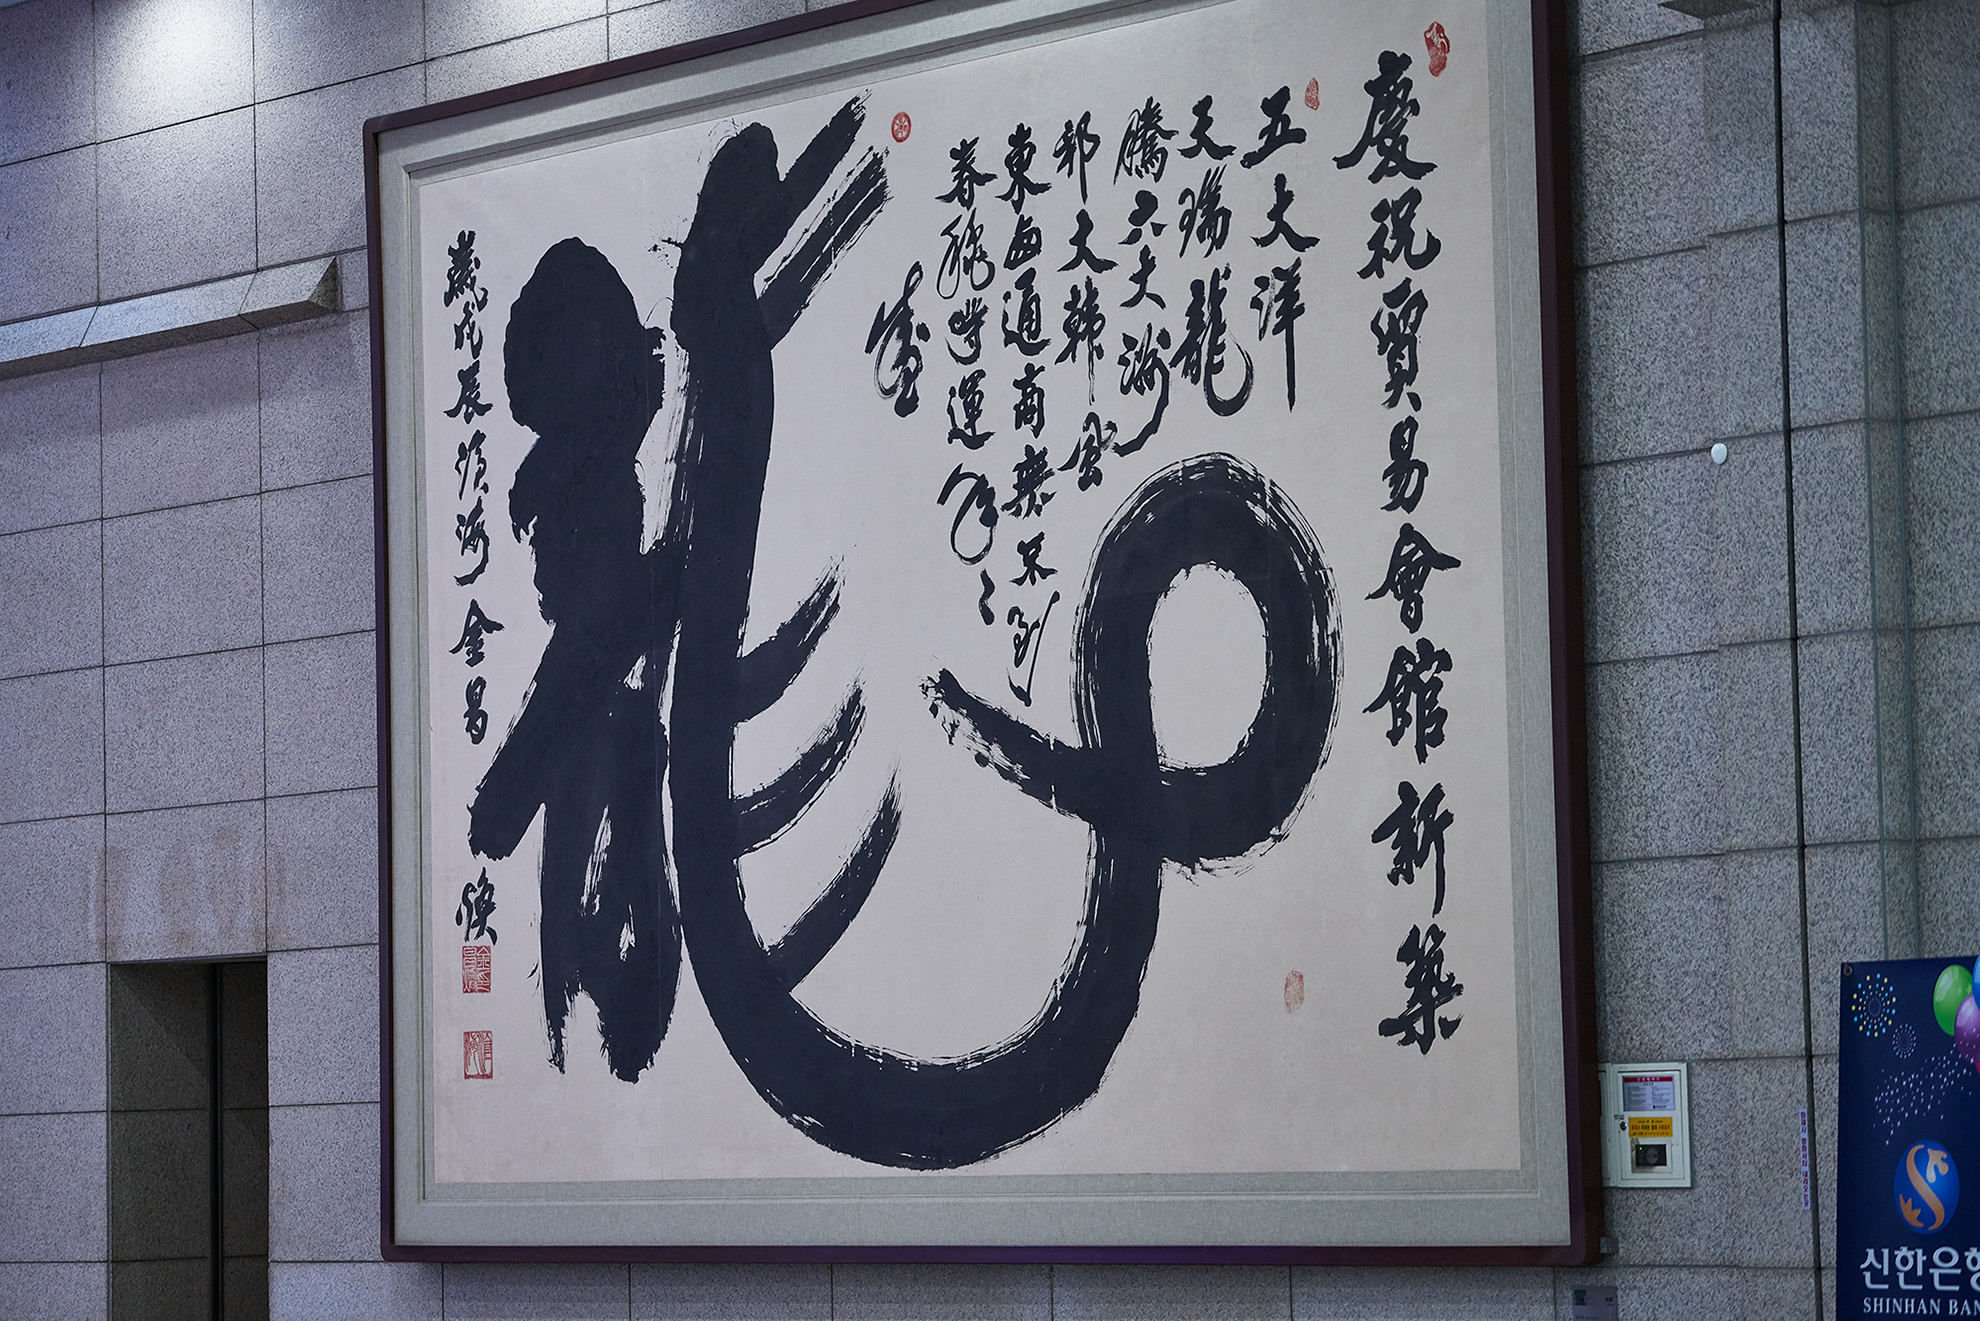 慶祝貿易會館新築
五大洋
天瑞龍
騰六大洲
邦大韓風
東西通商無不到
春秋時運年々
盛
龍
歲戊辰 海 金昌煥
신한은행
SHINHAN BAN